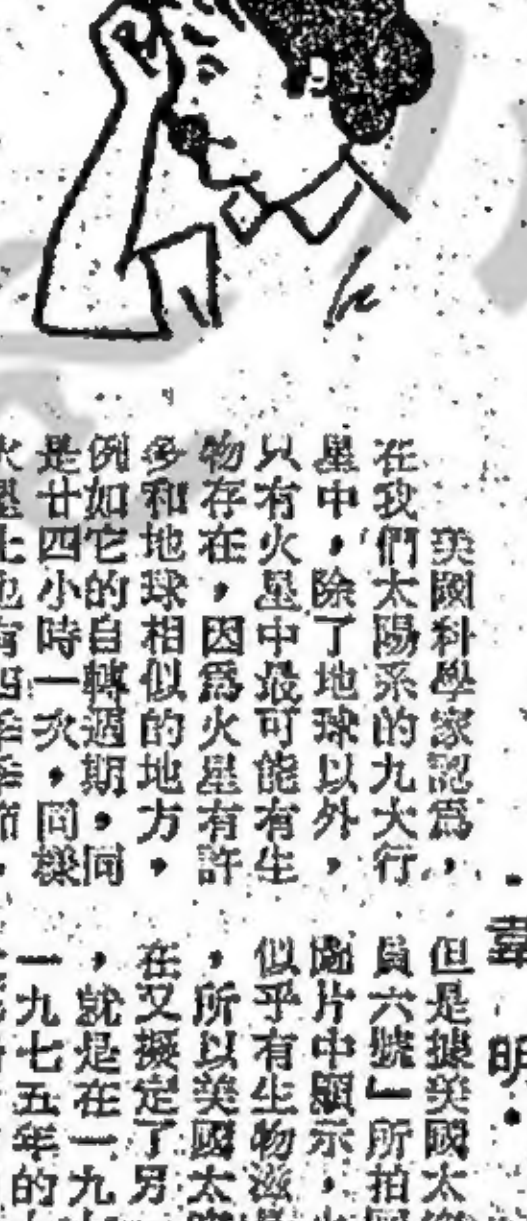 美國科學家認為，
在我們太陽系的九大行
星中，除了地球以外，
只有火星中最可能有生
物存在，因為火星有許
多和地球相似的地方，
例如它的自轉週期，同
是廿四小時一次，同樣
火星上也有四季季節，
·韋明·
但是據美國太
員六號」所拍
片中顯示，
似乎有生物滋
，所以美國太
在又擬定了另
，就是在一九
一九七五年的